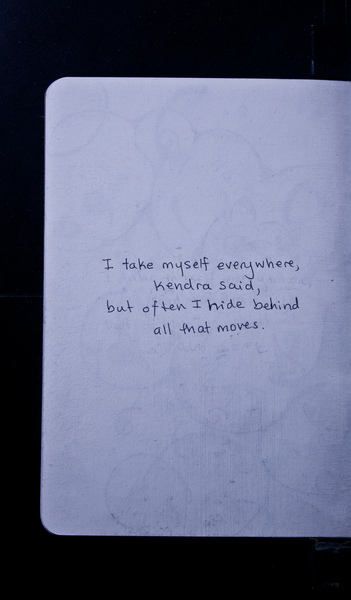 I take myself everywhere,
Kendra said,
but often I hide behind
all that moves.